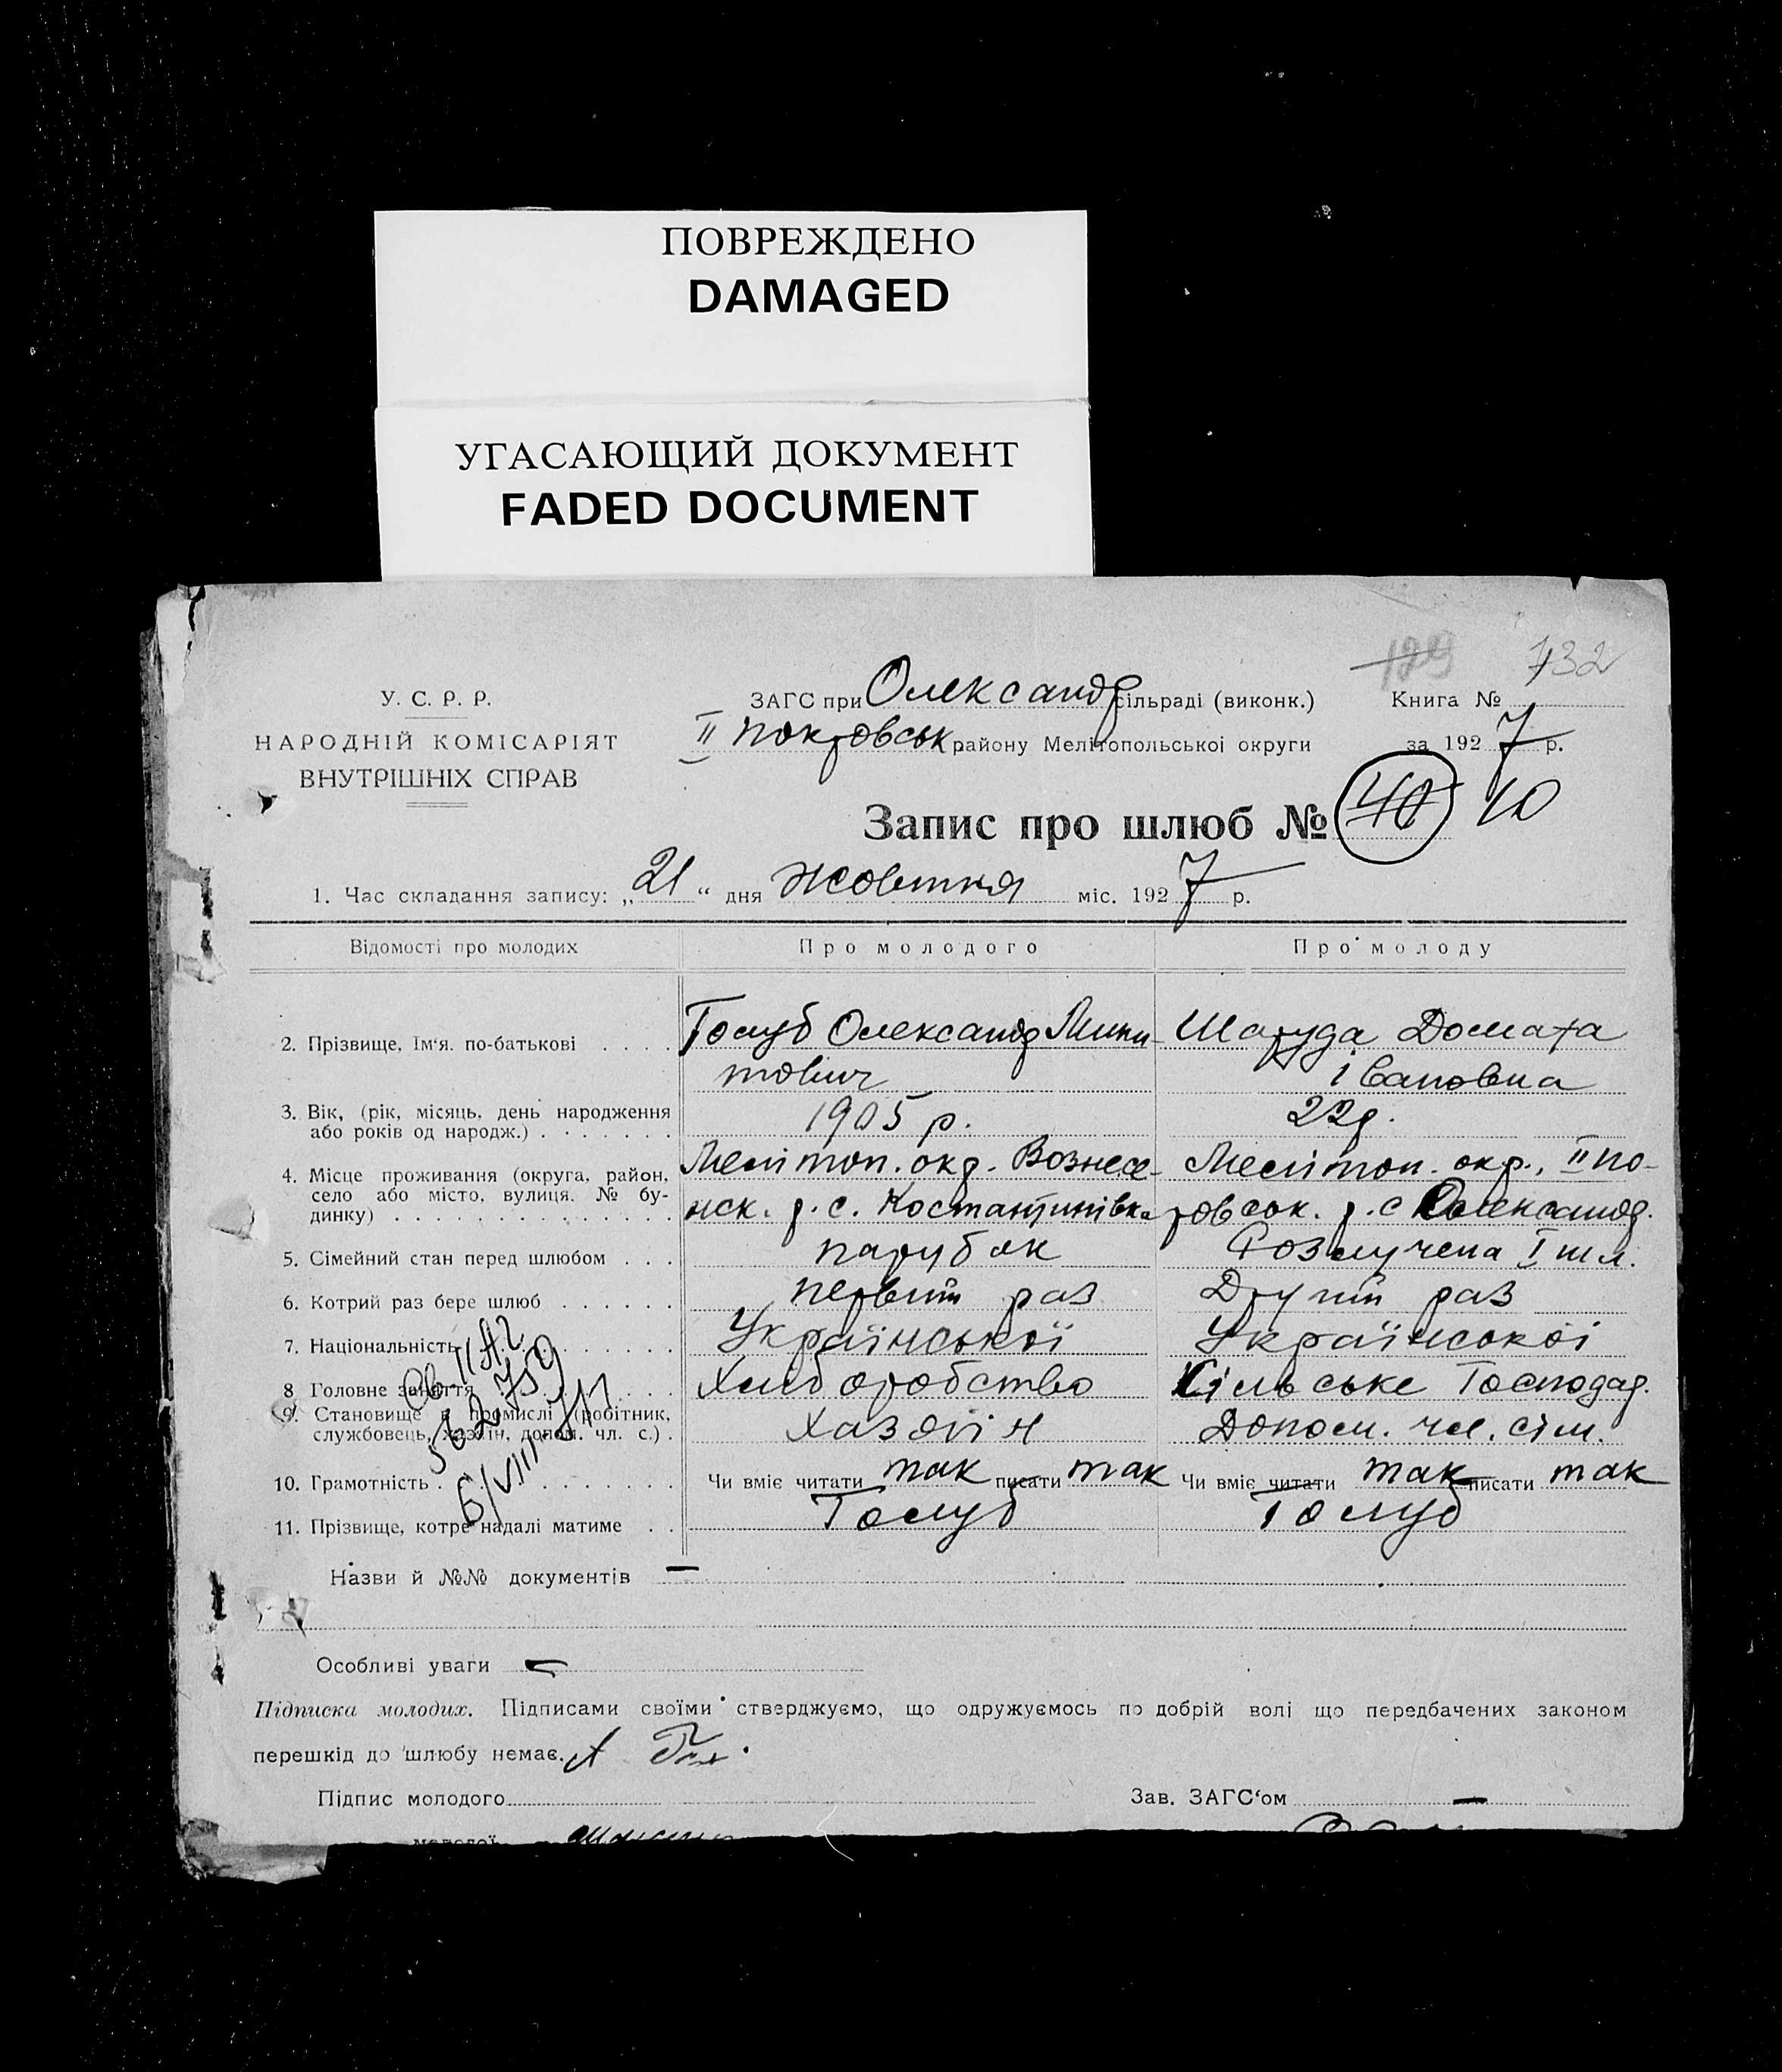 ПОВРЕЖДЕНО
DAMAGED
УГАСАЮЩИЙ ДОКУМЕНТ
FADED DOCUMENT
129 732
У. С. Р. Р.
НАРОДНІЙ КОМІСАРІЯТ
ВНУТРІШНІХ СПРАВ
ЗАГС при Олександр сільраді (виконк.) Книга №
II Покровськ. району Мелітопольської округи за 1927 р.
Запис про шлюб № 40 10
1. Час складання запису: „21“ дня жовтня міс. 1927 р.
Відомості про молодих Про молодого Про молоду
2. Прізвище, Ім'я. по-батькові Голуб Олександр Мики- Шаруда Домаха
тович Івановна
3. Вік, (рік, місяць, день народження 1905 р. 22 р.
або років од народж.)
4. Місце проживання (округа, район, Мелітоп. окр. Вознесе- Мелітоп. окр., II По-
село або місто, вулиця. № бу- нск. р. с. Костантинівка ровськ. р. с Олександр.
динку)
5. Сімейний стан перед шлюбом парубок Розлучена I шл.
6. Котрий раз бере шлюб первий раз Другий раз
7. Національність Української Української
8 Головне заняття Хліборобство Сільське Господар.
9. Становище в промислі (робітник, Хазяїн Допом. чл. сім.
службовець, хазяїн, допом. чл. с.)
10. Грамотність Чи вміє читати так писати так Чи вміє читати так писати так
11. Прізвище, котре надалі матиме Голуб Голуб
Назви й №№ документів —
Особливі уваги —
Підписка молодих. Підписами своїми стверджуємо, що одружуємось по добрій волі що передбачених законом
перешкід до шлюбу немає.
Підпис молодого Зав. ЗАГС'ом —
молодої